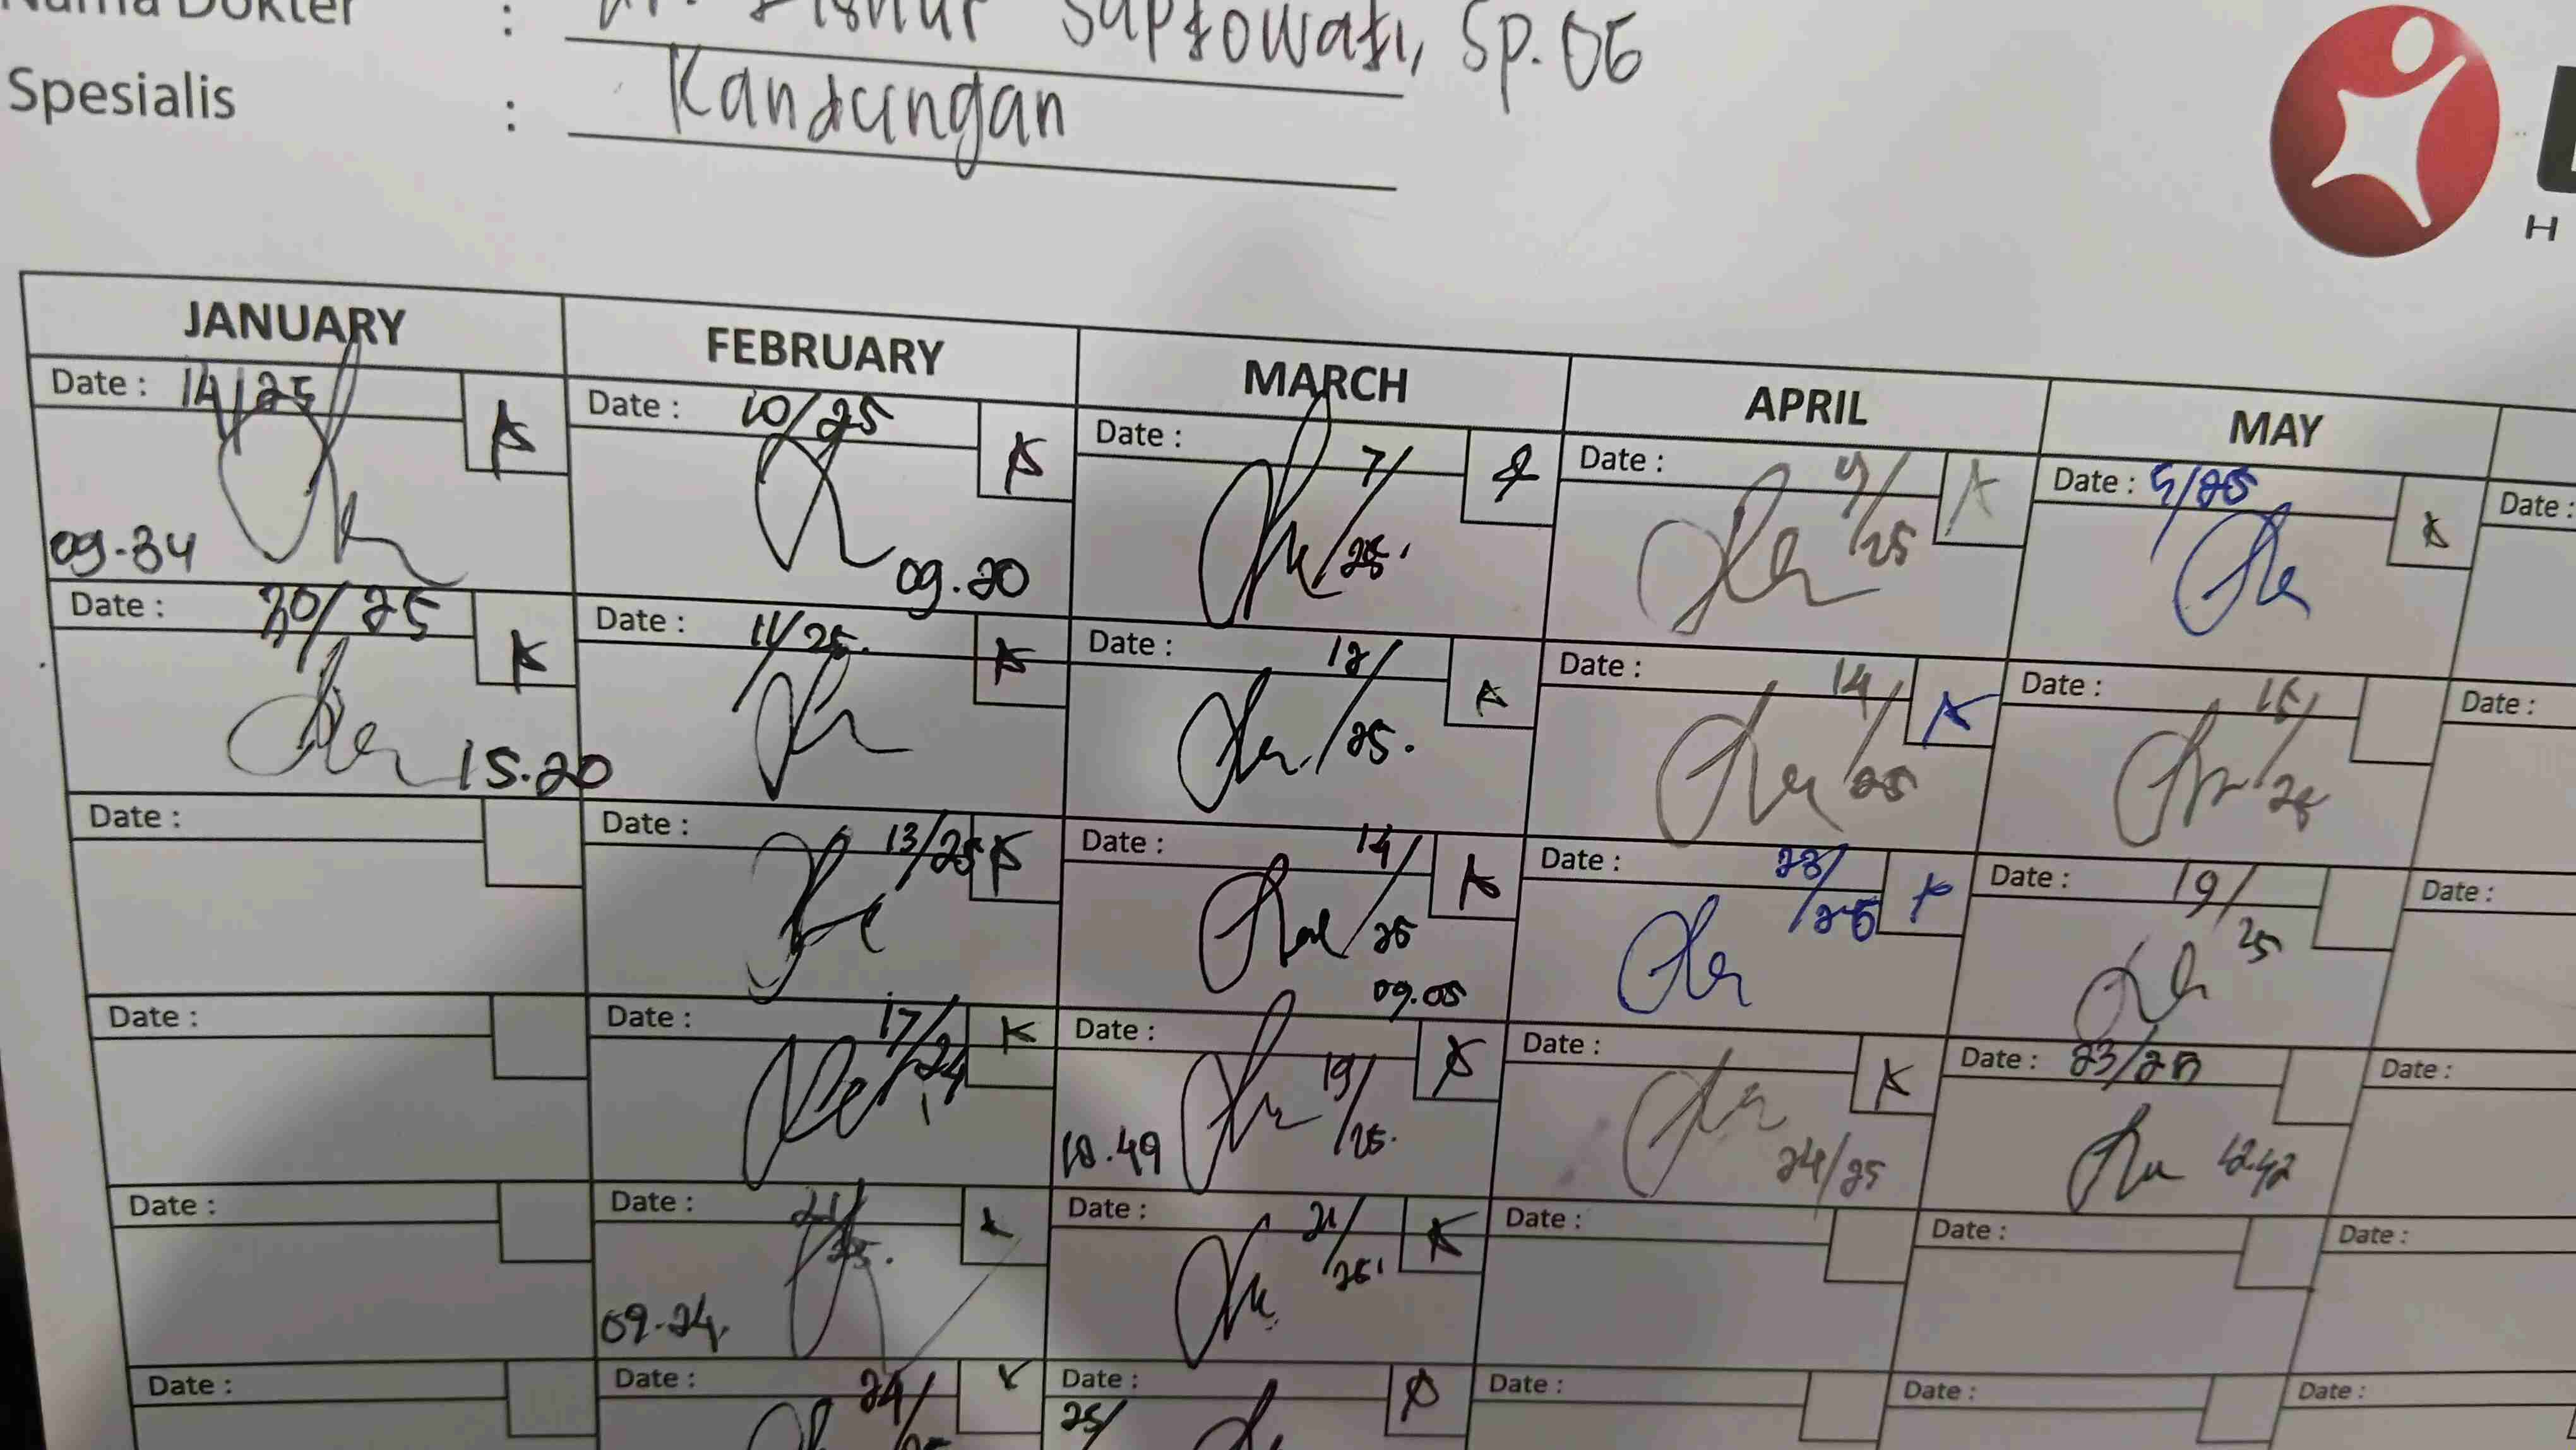 Nama Dokter :
Saptowati, Sp.OG
Spesialis : Kandungan
H
JANUARY FEBRUARY MARCH APRIL MAY
Date : 14/25
09.34
Date : 10/25
09.20
Date : 7/25
Date : 9/25
Date : 5/25
Date :
Date : 20/25
15.20
Date : 11/25.
Date : 12/25.
Date : 14/25
Date : 15/25
Date :
Date :
Date : 13/25
Date : 14/25
09.05
Date : 23/25
Date : 19/25
Date :
Date :
Date : 17/24
Date : 19/25.
10.49
Date : 24/25
Date : 23/25
12.42
Date :
Date :
Date : 21/25.
09.24.
Date : 21/25
Date :
Date :
Date :
Date :
Date : 24/25
Date : 25/
Date :
Date :
Date :